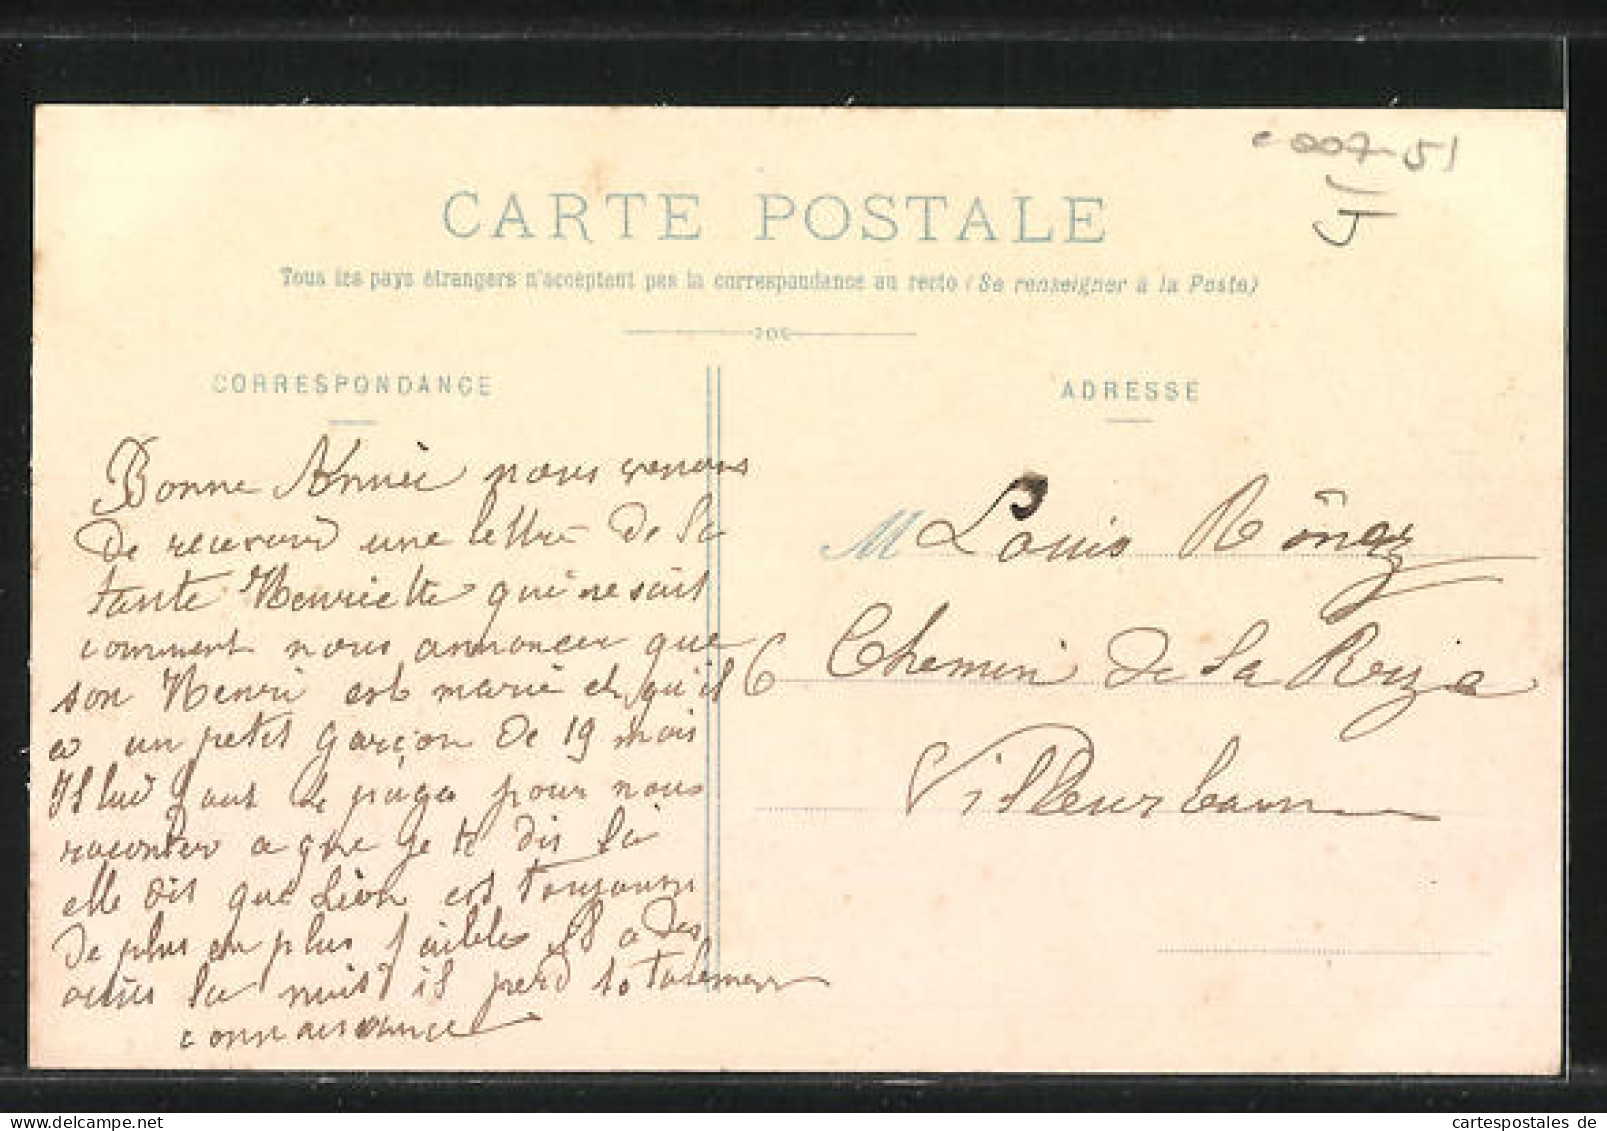 CARTE POSTALE
Tous les pays étrangers n'acceptent pas la correspondance au recto (Se renseigner à la Poste)
CORRESPONDANCE
Bonne Année nous venons
de recevoir une lettre de la
tante Henriette qui ne sait
comment nous annoncer que
son Henri est marié et qu'il
a un petit garçon de 19 mois
Il lui faut de page pour nous
raconter a que je te dis la
elle dit que Léon est toujours
de plus en plus faible Il a des
la nuit il perd totalement
connaissance
51
ADRESSE
M Louis
6 Chemin de la
Villeurbanne
cartespostales de